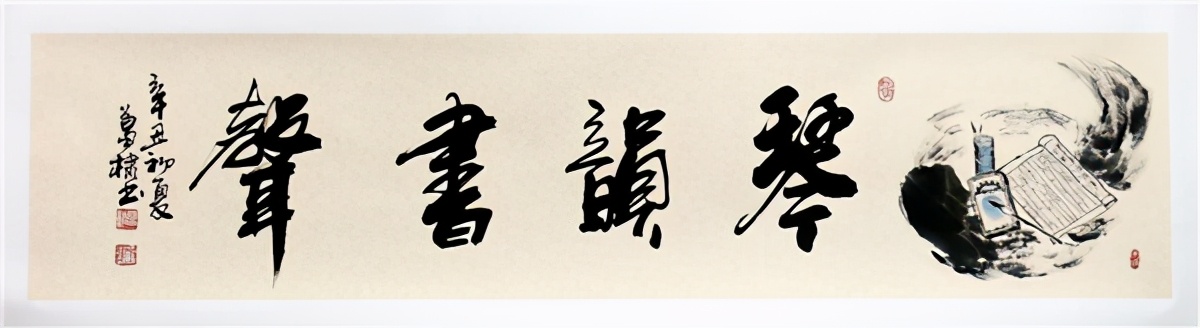 琴韻書聲
辛丑初夏
書